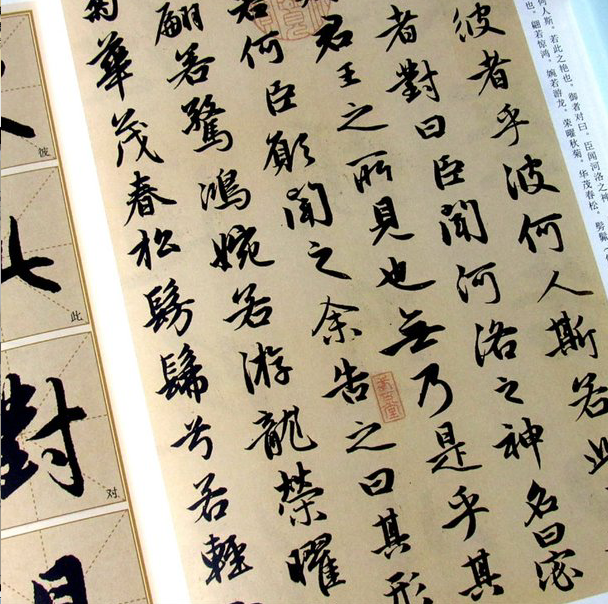 何人斯，若此之艳也。御者对曰，臣闻河洛之神
也。翩若惊鸿，婉若游龙。荣曜秋菊，华茂春松。髣髴
彼者乎彼何人斯若此
者對曰臣聞河洛之神名曰宓
君王之所見也無乃是乎其
若何臣願聞之余告之曰其形
翩若驚鴻婉若游龍榮曜
菊華茂春松髣髴兮若輕
彼
此
此
對
对